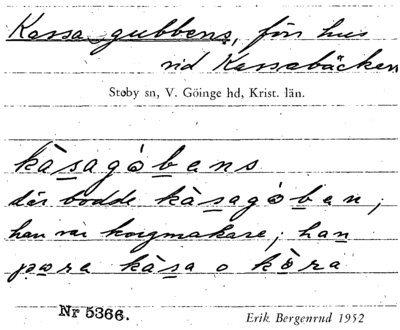 Kassa gubbens, förr hus
vid Kassabäcken
Støby sn, V. Göinge hd, Krist. län.
kàsagòbens
där bodde kàsagòben;
han var korgmakare; han
kàsa o kòra
Nr 5366.
Erik Bergenrud 1952